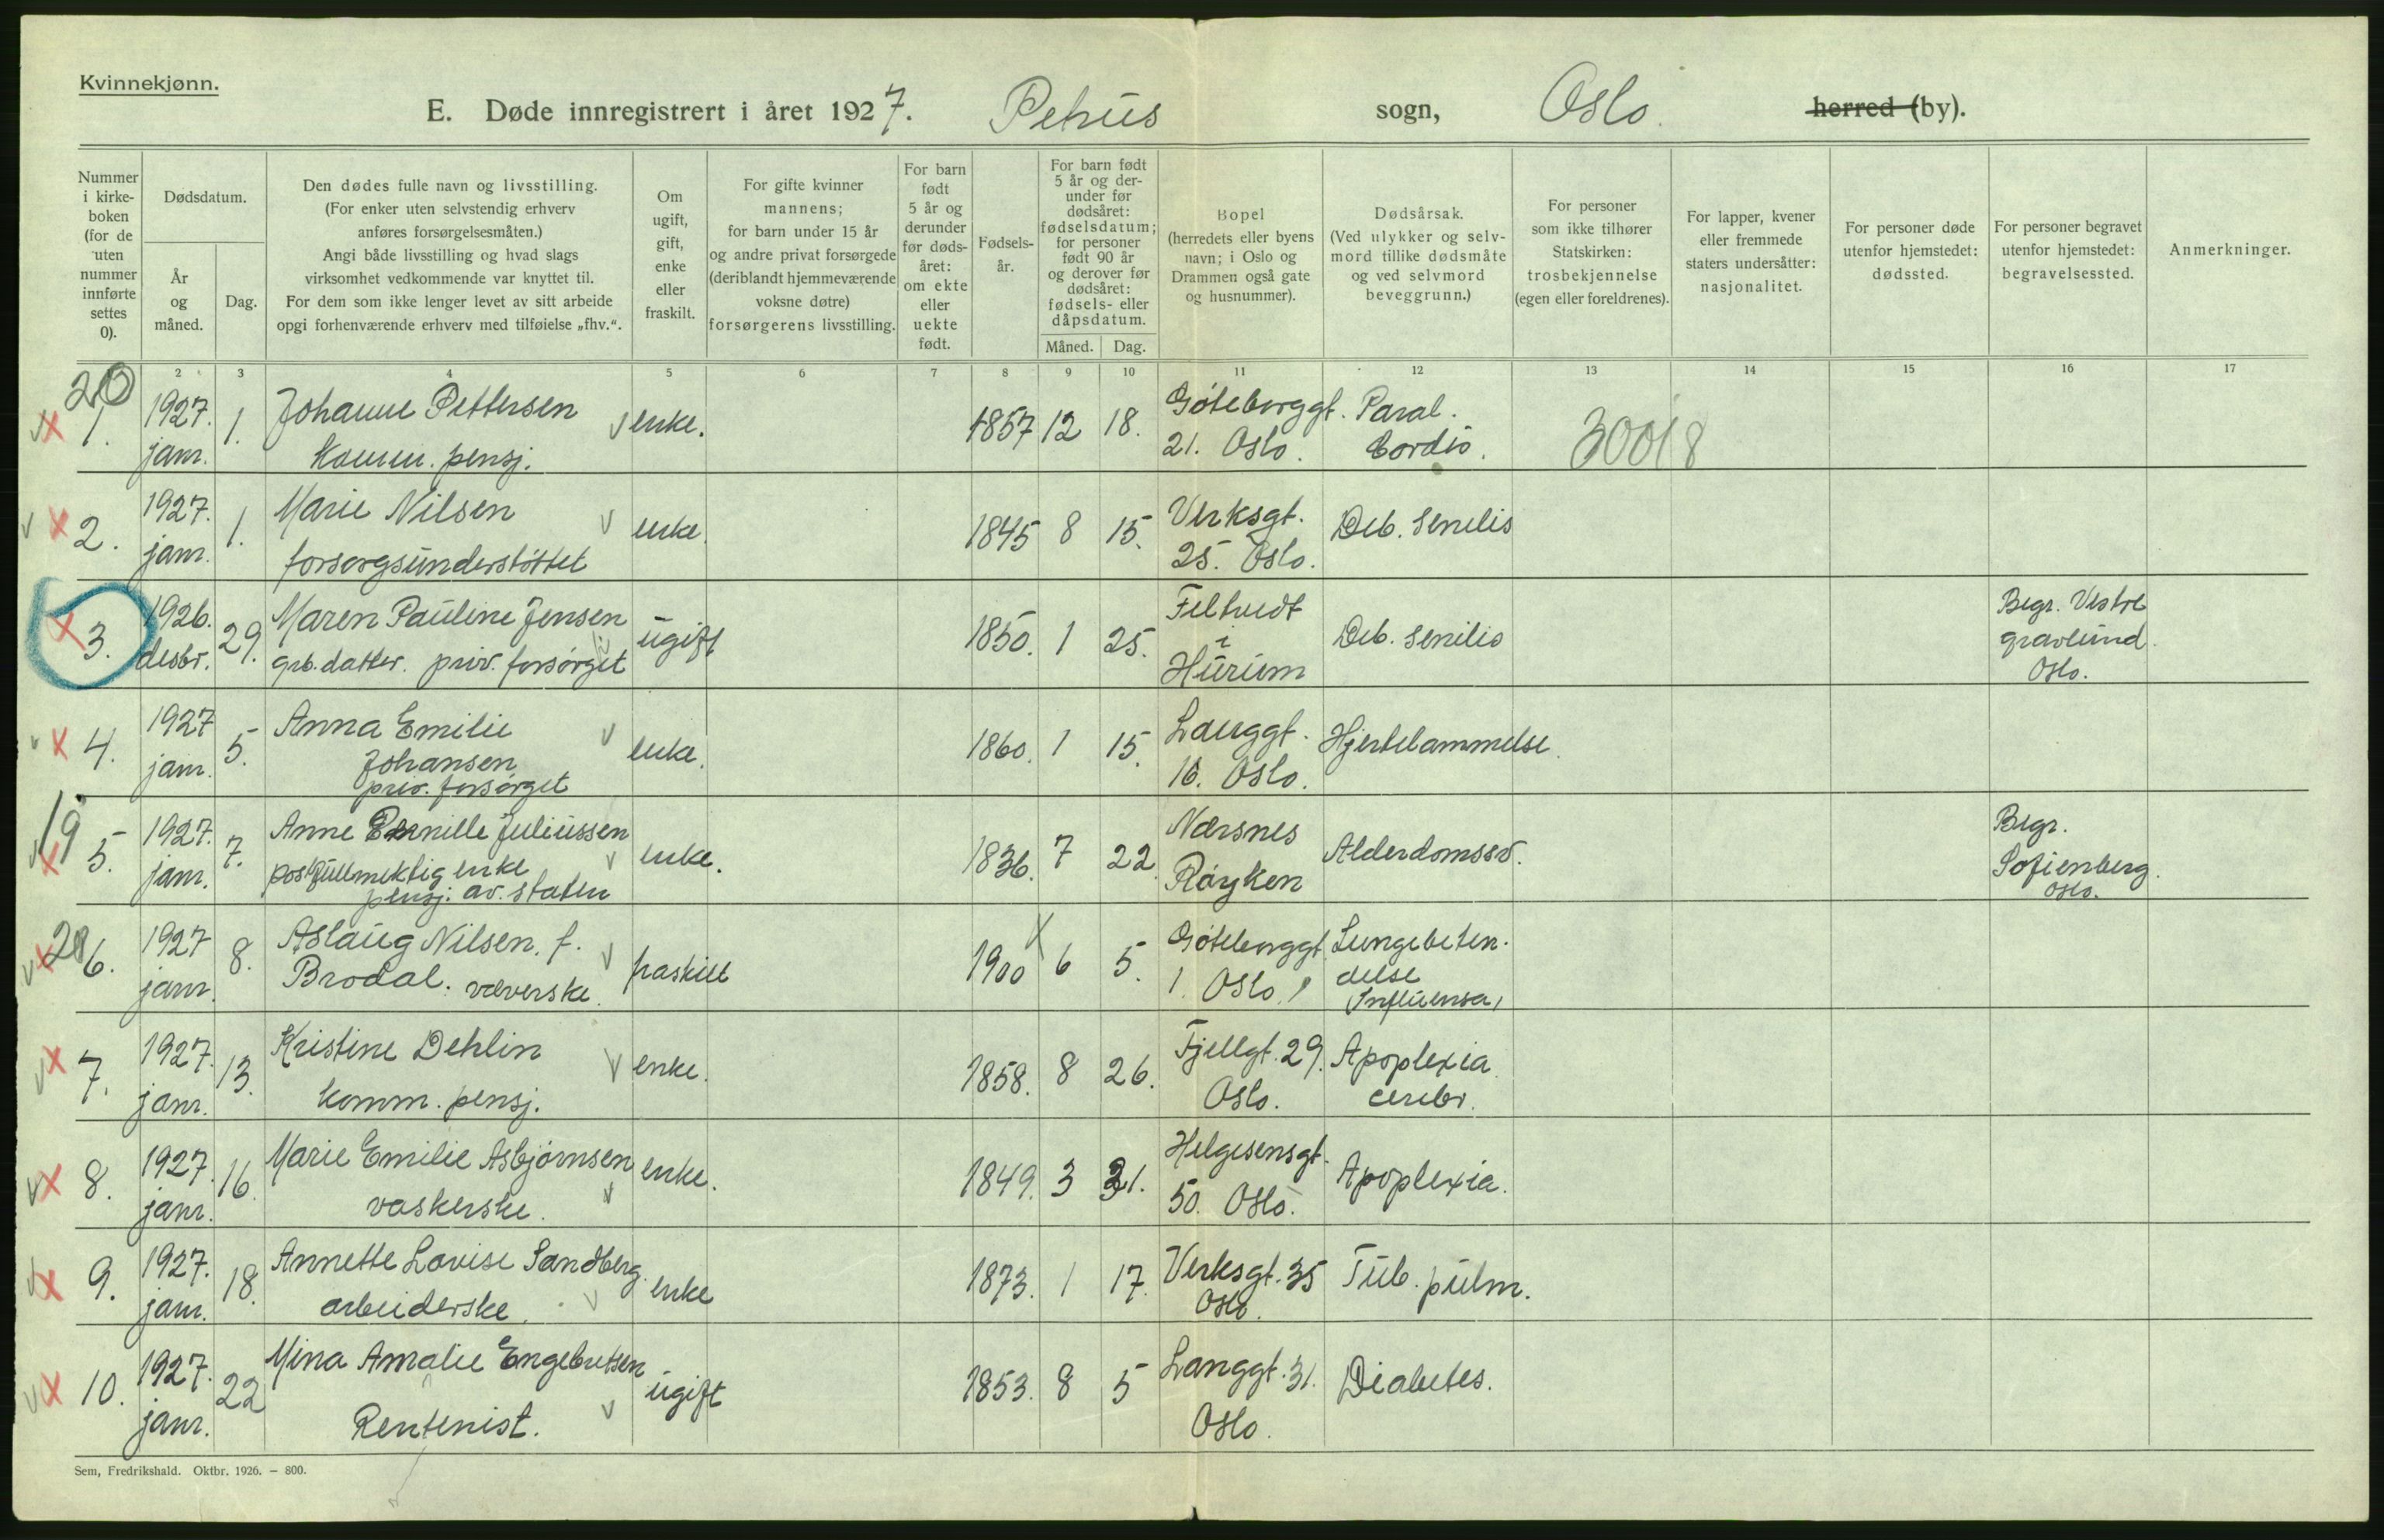 Kvinnekjønn.
E. Døde innregistrert i året 1927. Petrus sogn, Oslo. herred (by).
Nummer
i kirke-
boken
(for de
uten
nummer
innførte
settes
0).
Dødsdatum.
År
og
måned.
Dag.
Den dødes fulle navn og livsstilling.
(For enker uten selvstendig erhverv
anføres forsørgelsesmåten.)
Angi både livsstilling og hvad slags
virksomhet vedkommende var knyttet til.
For dem som ikke lenger levet av sitt arbeide
opgi forhenværende erhverv med tilføielse „fhv.“.
Om
ugift,
gift,
enke
eller
fraskilt.
For gifte kvinner
mannens;
for barn under 15 år
og andre privat forsørgede
(deriblandt hjemmeværende
voksne døtre)
forsørgerens livsstilling.
For barn
født
5 år og
derunder
før døds-
året:
om ekte
eller
uekte
født.
Fødsels-
år.
For barn født
5 år og der-
under før
dødsåret:
fødselsdatum;
for personer
født 90 år
og derover før
dødsåret:
fødsels- eller
dåpsdatum.
Måned. Dag.
Bopel
(herredets eller byens
navn; i Oslo og
Drammen også gate
og husnummer).
Dødsårsak.
(Ved ulykker og selv-
mord tillike dødsmåte
og ved selvmord
beveggrunn.)
For personer
som ikke tilhører
Statskirken:
trosbekjennelse
(egen eller foreldrenes).
For lapper, kvener
eller fremmede
staters undersåtter:
nasjonalitet.
For personer døde
utenfor hjemstedet:
dødssted.
For personer begravet
utenfor hjemstedet:
begravelsessted.
Anmerkninger.
2 3 4 5 6 7 8 9 10 11 12 13 14 15 16 17
20
1. 1927. 1. Johanne Pettersen enke. 1857 12 18. Göteborggt. Paral.
janr. Komm. pensj. 21. Oslo. Cordis. 30018
2. 1927. 1. Marie Nilsen enke. 1845 8 15. Verksgt. Deb. senilis
janr. forsorgsunderstøttet 25. Oslo.
3. 1926. 29. Maren Pauline Jensen ugift 1850. 1 25. Feltvedt Deb. senilis Begr. Vestre
desbr. grb. datter. priv. forsørget i gravlund.
Hurum Oslo.
4. 1927 5. Anna Emilie enke. 1860. 1 15. Langgt. Hjertelammelse.
janr. Johansen 16. Oslo.
priv. forsørget
19
5. 1927. 7. Anne Pernille Juliussen enke. 1836. 7 22. Nærsnes Alderdomssv. Begr.
janr. postfullmektig enke Røyken Sofienberg.
pensj. av. staten Oslo.
20
6. 1927 8. Aslaug Nilsen. f. fraskilt 1900 6 5. Göteborggt Lungebeten-
janr. Brodal. væverske. 1. Oslo. delse
(Influensa)
7. 1927. 13. Kristine Dehlin enke. 1858. 8 26. Fjellgt. 29. Apoplexia
janr. Komm. pensj. Oslo. cerebr.
8. 1927. 16. Marie Emilie Asbjørnsen enke. 1849. 3 31. Helgesensgt. Apoplexia.
janr. vaskerske. 50. Oslo.
9. 1927. 18. Annette Lovise Sandberg. enke 1873. 1 17. Verksgt. 35 Tub. pulm.
janr. arbeiderske. Oslo.
10. 1927. 22 Mina Amalie Engebretsen ugift 1853. 8 5 Langgt. 31. Diabetes.
janr. Rentenist. Oslo.
Sem, Fredrikshald. Oktbr. 1926. – 800.